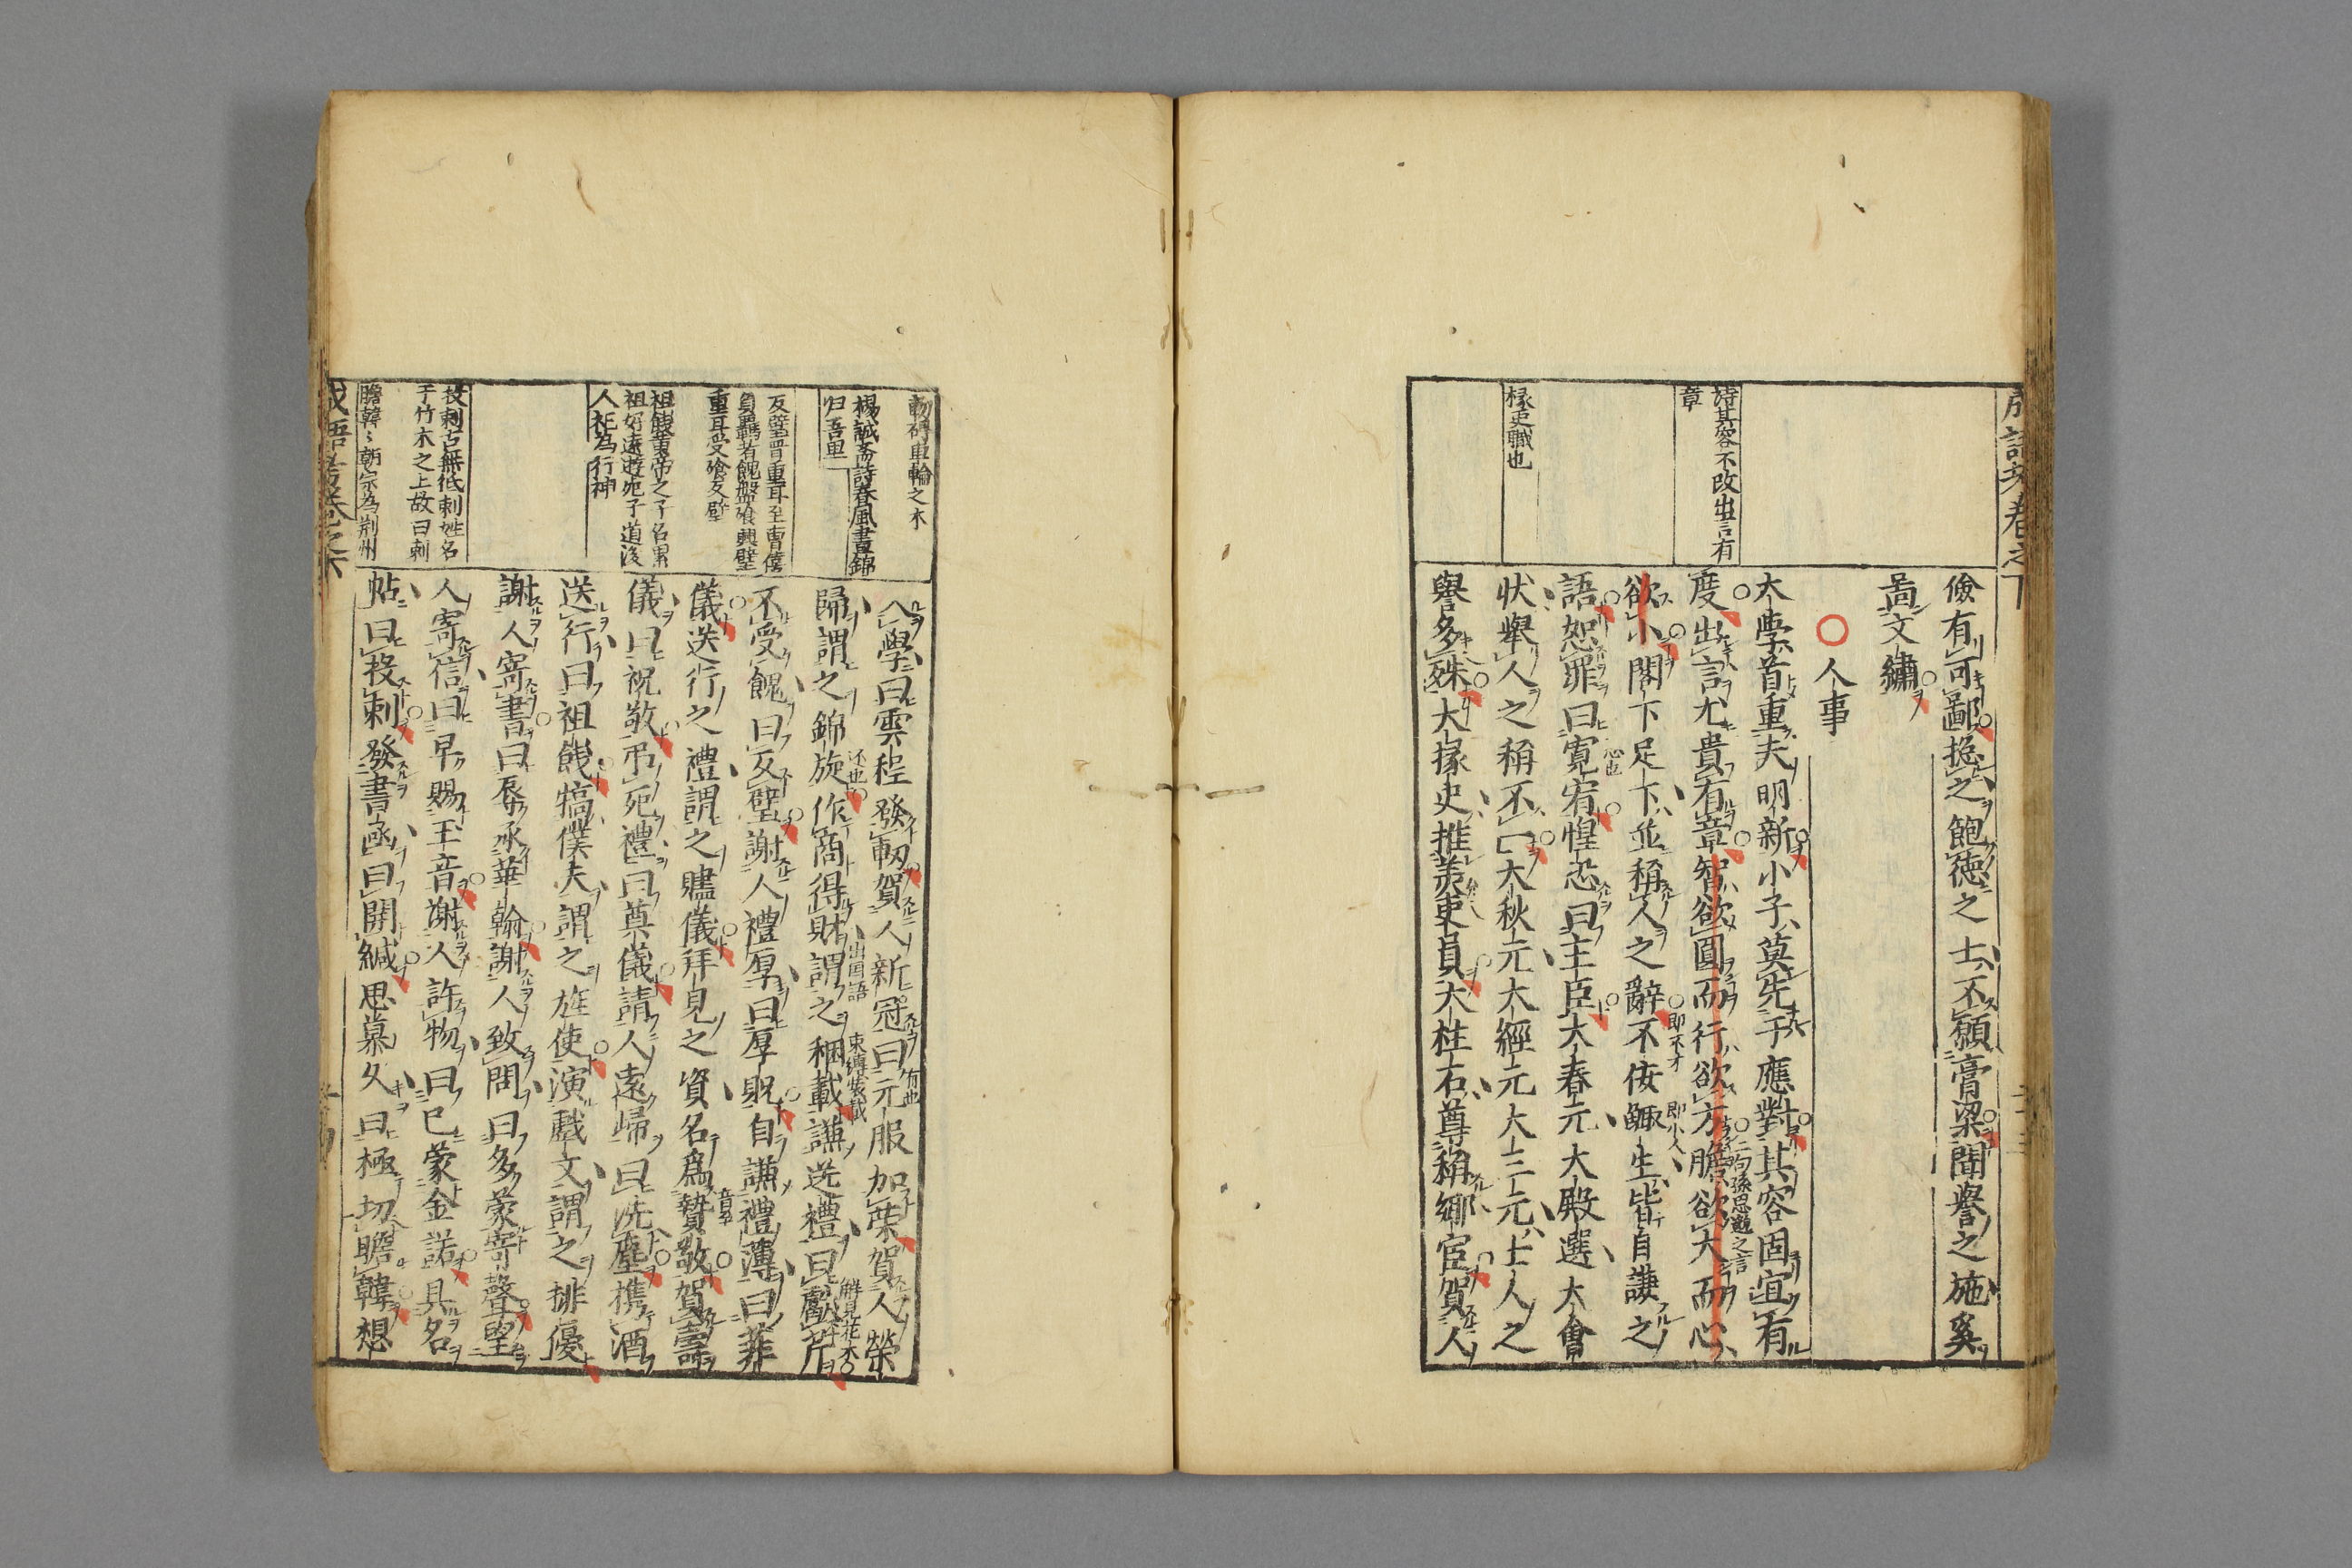 成語考卷之下
詩其容不改出言有
章
掾吏職也
儉有可鄙換之飽德之士不願膏梁聞譽之施奚
啚文繡
人事
大學首重夫明新小子莫先于應對其容固宜有
度出言尤貴有章智欲圓而行欲方膽欲大而心
二句孫思邈之言
欲小閣下足下並稱人之辭不佞鯫生皆自謙之
即不才
即小人
語恕罪曰寛宥惶恐曰主臣大春元大殿選大會
狀舉人之稱不一大秋元大經元大三元士人之
譽多殊大掾史推羙吏員大柱石尊稱鄉宦賀人
軔碍車輪之木
楊誠斎詩春風晝錦
归吾里
反璧晋重耳至曹僖
負羈者餽盤飱興璧
重耳受飱反璧
祖餞黄帝之子名累
祖好遠遊死于道後
人祀為行神
投刺古無纸刺姓名
于竹木之上故曰刺
瞻韓〻朝宗為荆州
入學曰雲程發軔賀人新冠曰元服加榮賀人榮
歸謂之錦旋作商得財謂之稇載謙送禮曰獻芹
还也
出国語
束縛装載
解見花木
不受餽曰反璧謝人禮厚曰厚貺自謙禮薄曰菲
儀送行之禮謂之贐儀拜見之資名爲贄敬賀壽
儀曰祝敬吊死禮曰奠儀請人遠歸曰洗塵携酒
送行曰祖餞犒僕夫謂之旌使演戲文謂之排優
謝人寄書曰辱承華翰謝人致問曰多蒙寄聲望
人寄信曰早賜玉音謝人許物曰已蒙金諾具名
帖曰投刺發書函曰開緘思慕久曰極切瞻韓想
成語考卷之下